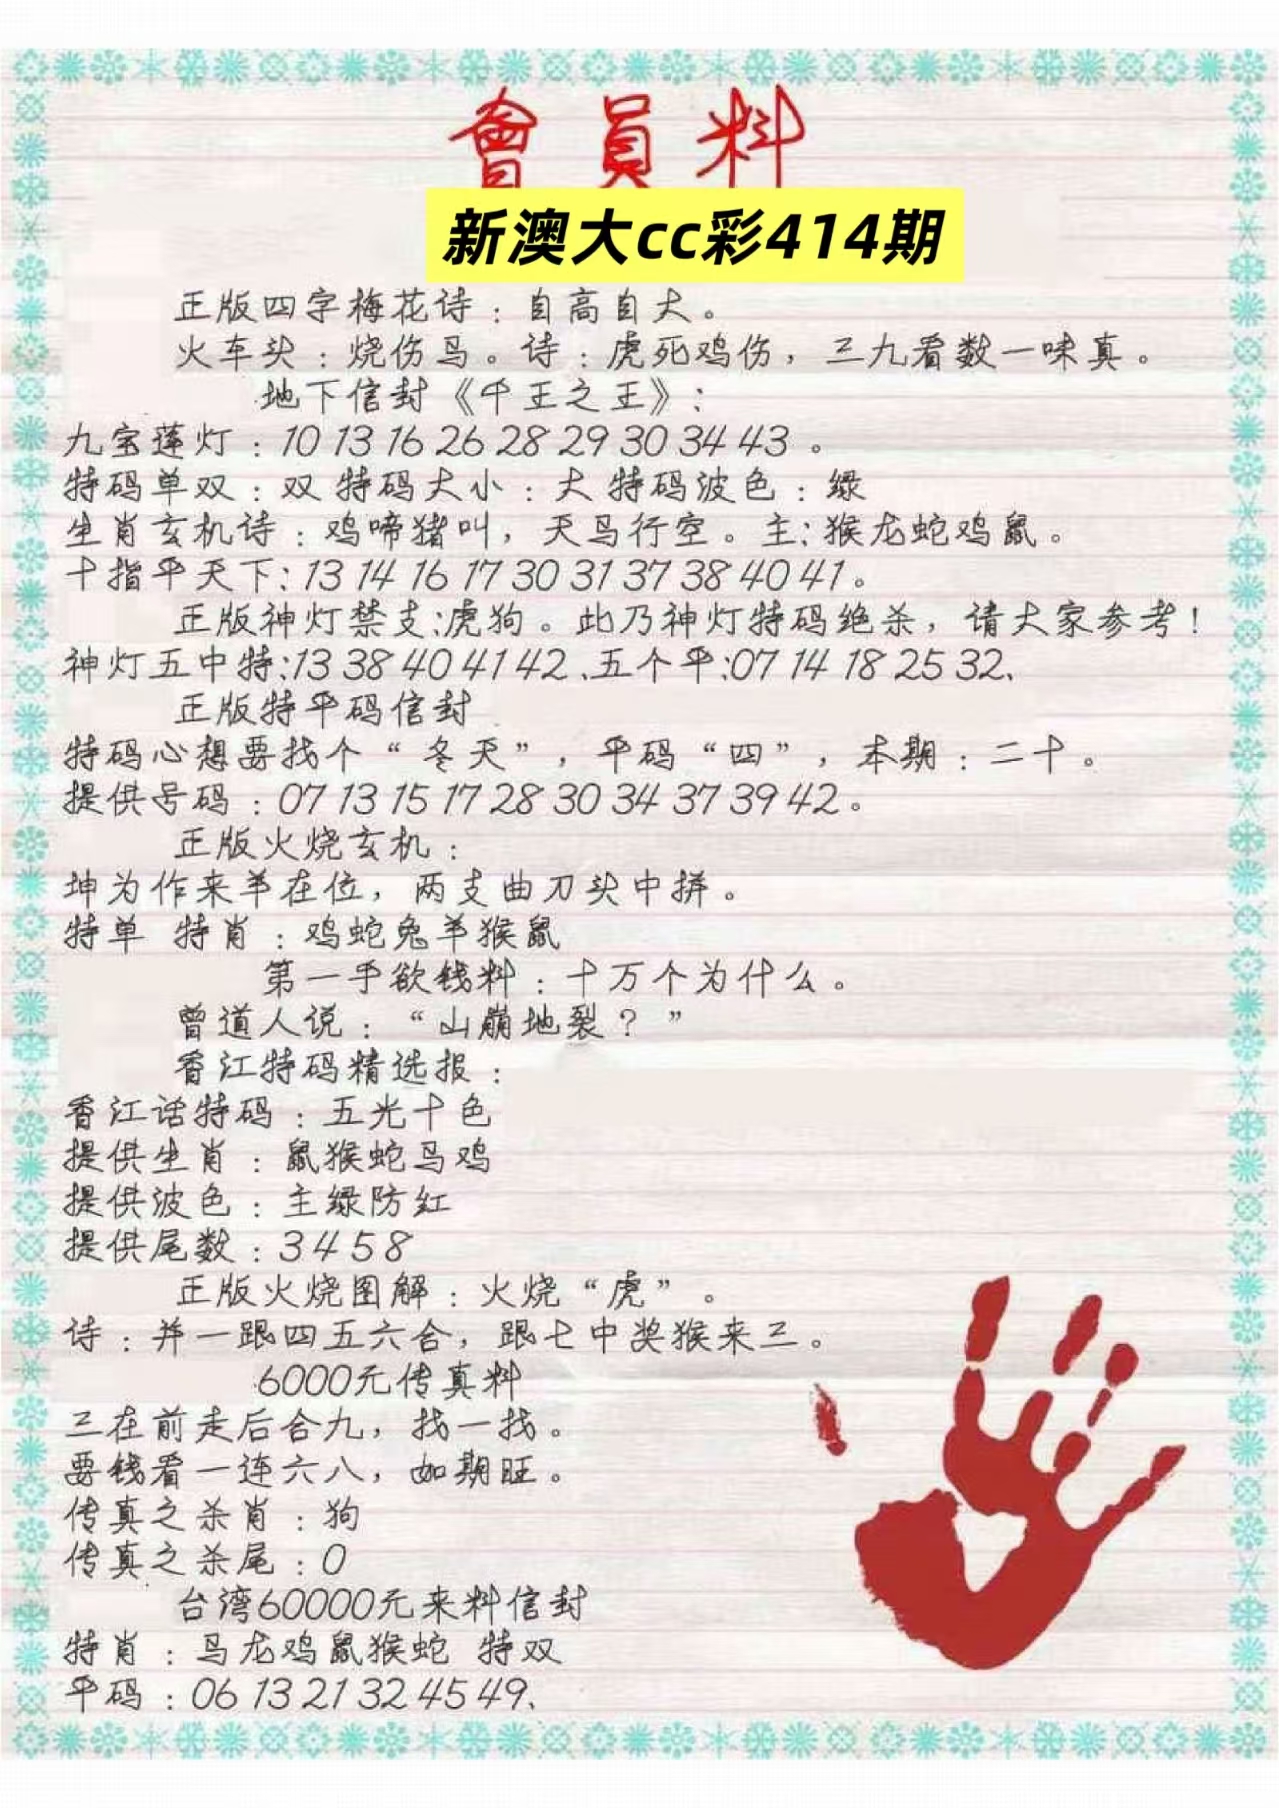 會員料
新澳大cc彩414期
正版四字梅花诗：自高自大。
火车头：烧伤马。诗：虎死鸡伤，三九看数一味真。
地下信封《千王之王》：
九宝莲灯：10 13 16 26 28 29 30 34 43 。
特码单双：双 特码大小：大 特码波色：绿
生肖玄机诗：鸡啼猪叫，天马行空。主：猴龙蛇鸡鼠。
十指平天下：13 14 16 17 30 31 37 38 40 41。
正版神灯禁支：虎狗。此乃神灯特码绝杀，请大家参考！
神灯五中特：13 38 40 41 42、五个平：07 14 18 25 32、
正版特平码信封
特码心想要找个“冬天”，平码“四”，本期：二十。
提供号码：07 13 15 17 28 30 34 37 39 42。
正版火烧玄机：
坤为作来羊在位，两支曲刀头中拼。
特单 特肖：鸡蛇兔羊猴鼠
第一手欲钱料：十万个为什么。
曾道人说：“山崩地裂？”
香江特码精选报：
香江话特码：五光十色
提供生肖：鼠猴蛇马鸡
提供波色：主绿防红
提供尾数：3 4 5 8
正版火烧图解：火烧“虎”。
诗：并一跟四五六合，跟七中奖猴来三。
6000元传真料
三在前走后合九，找一找。
要钱看一连六八，如期旺。
传真之杀肖：狗
传真之杀尾：0
台湾60000元来料信封
特肖：马龙鸡鼠猴蛇 特双
平码：06 13 21 32 45 49、